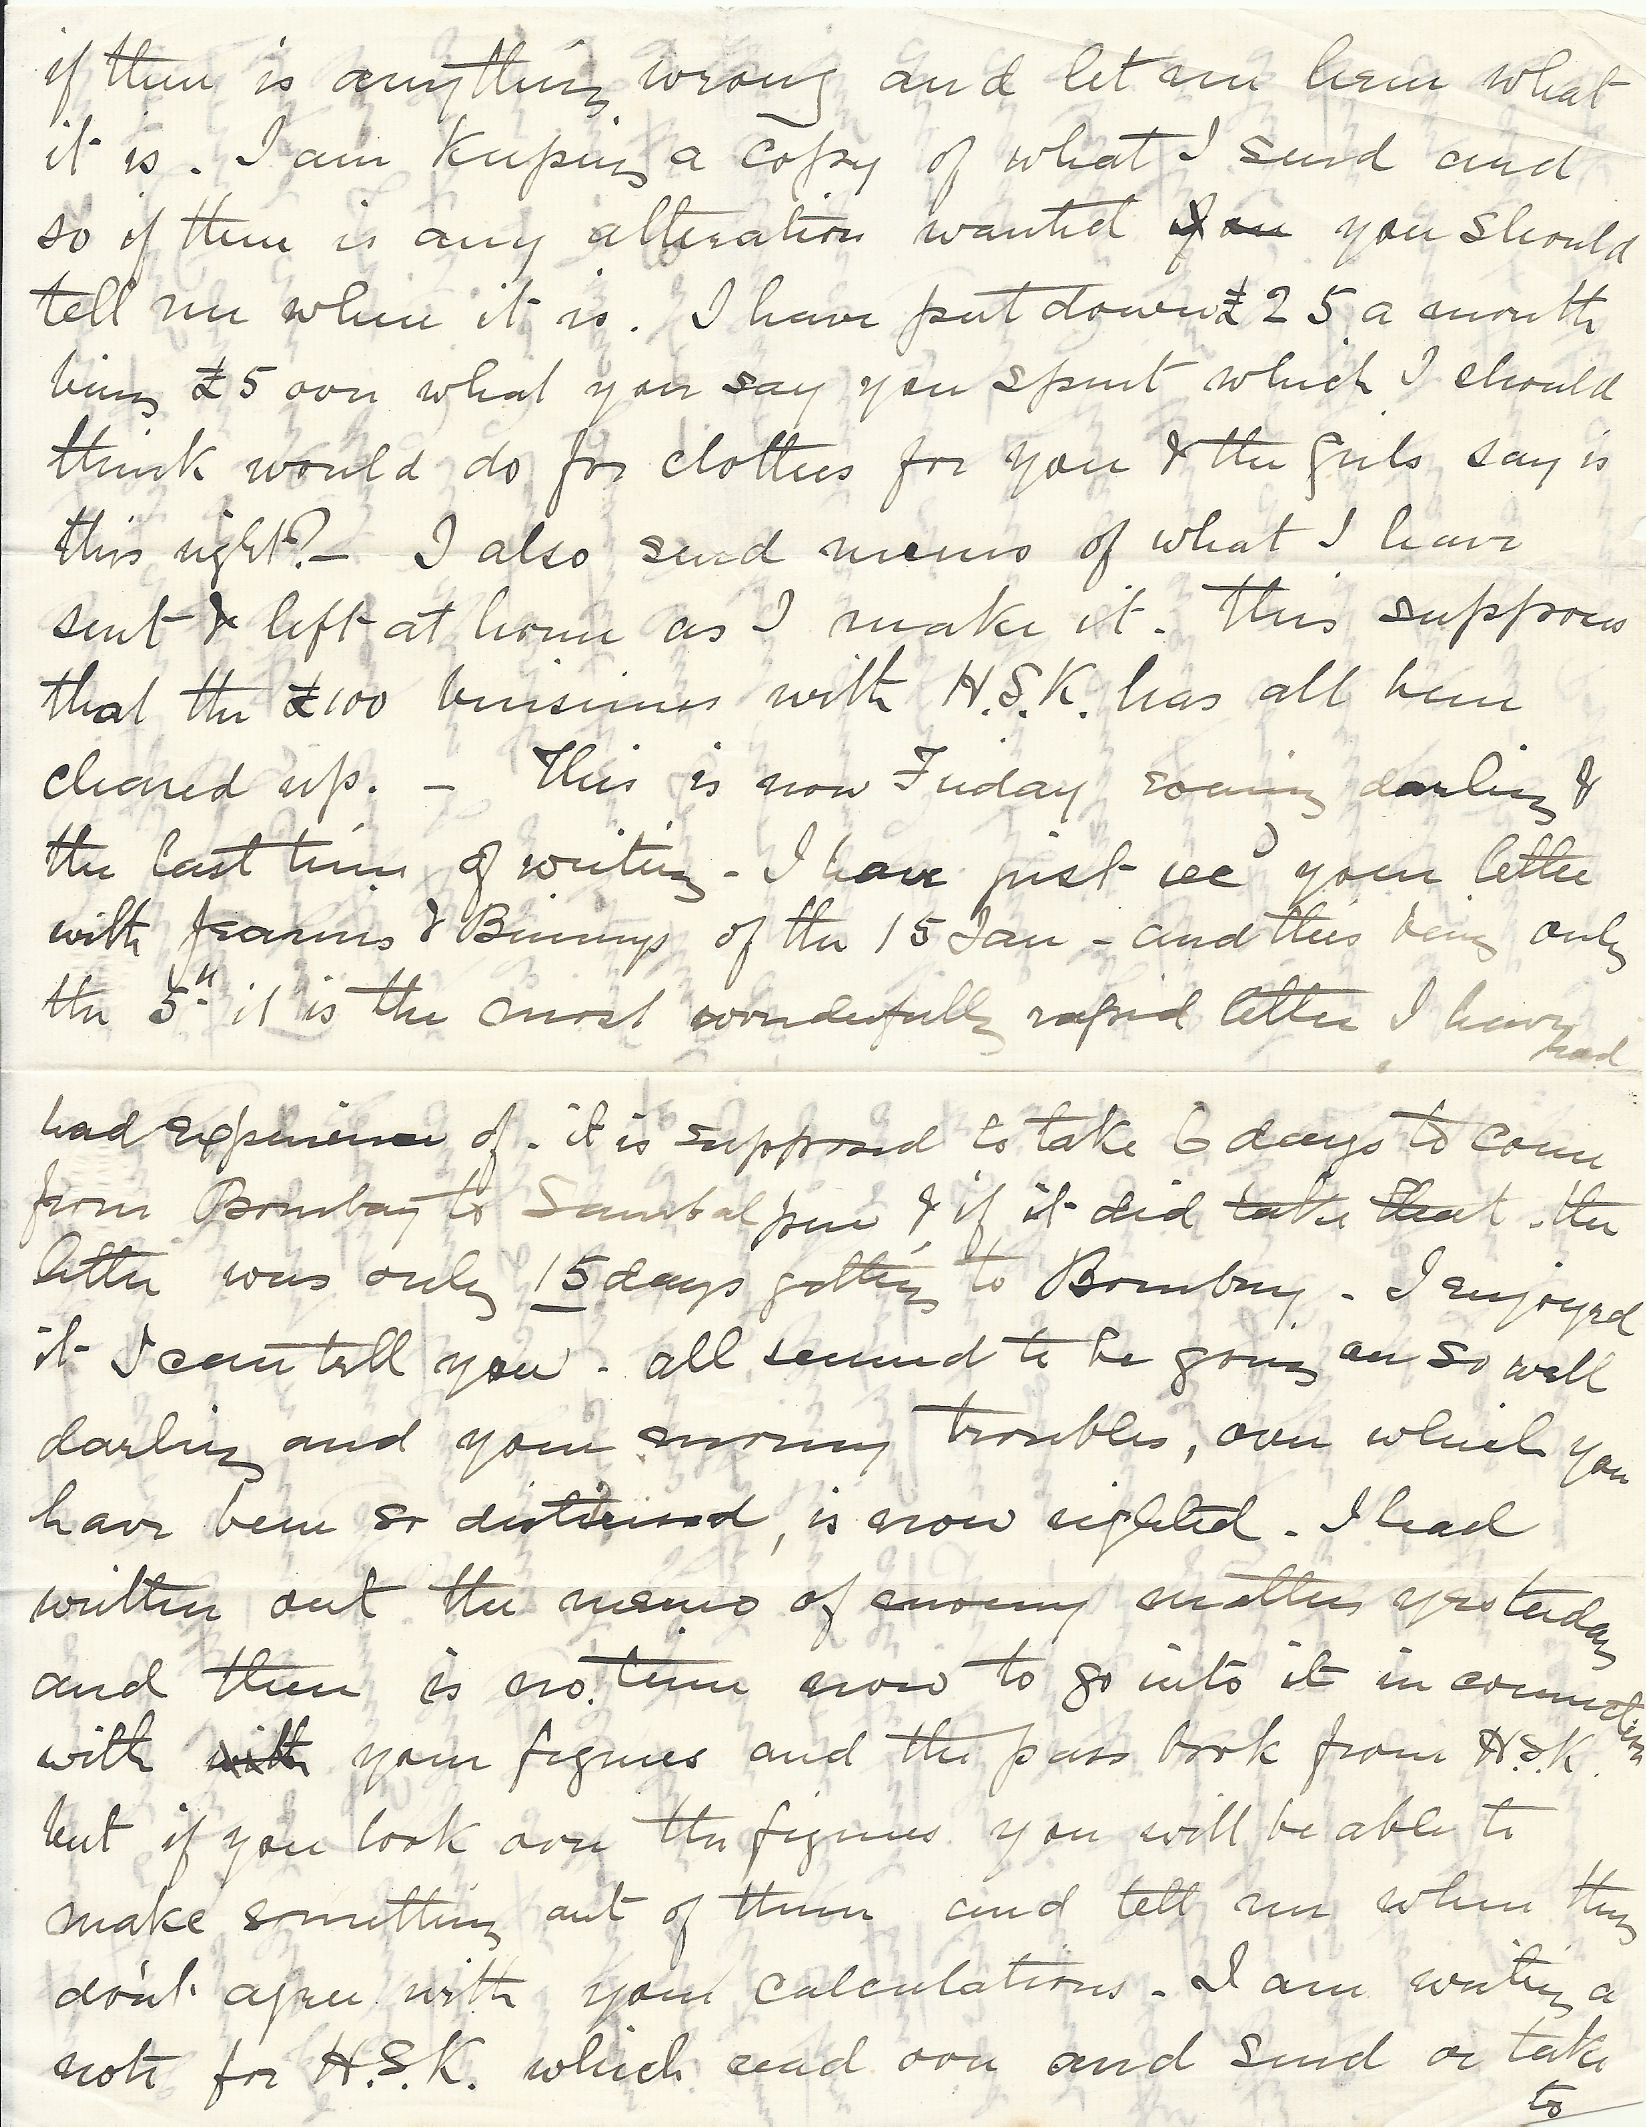 if there is anything wrong and let me know what
it is. I am keeping a copy of what I send and
so if there is any alteration wanted you should
tell me where it is. I have put down £25 a month
being £5 over what you say you spent which I should
think would do for clothes for you & the girls say is
this right? – I also send memo of what I have
sent & left at home as I make it. This supposes
that the £100 business with H.S.K. has all been
cleared up. – This is now Friday evening darling &
the last time of writing - I have just recd your letter
with & of the 15 Jan - and this being only
the 5th it is the most wonderfully rapid letter I have
had
had experience of - it is supposed to take 6 days to come
from Bombay to Sambalpur & if it did take that - the
letter was only 15 days getting to Bombay - I enjoyed
it I can tell you - all seemed to be going on so well
darling and your money troubles, over which you
have been so distressed, is now righted - I had
written out the memo of money matters yesterday
and there is no time now to go into it in connection
with with your figures and the pass book from H.S.K.
but if you look over the figures you will be able to
make something out of them and tell me when they
don't agree with your calculations - I am writing a
note for H.S.K. which read over and send or take
to